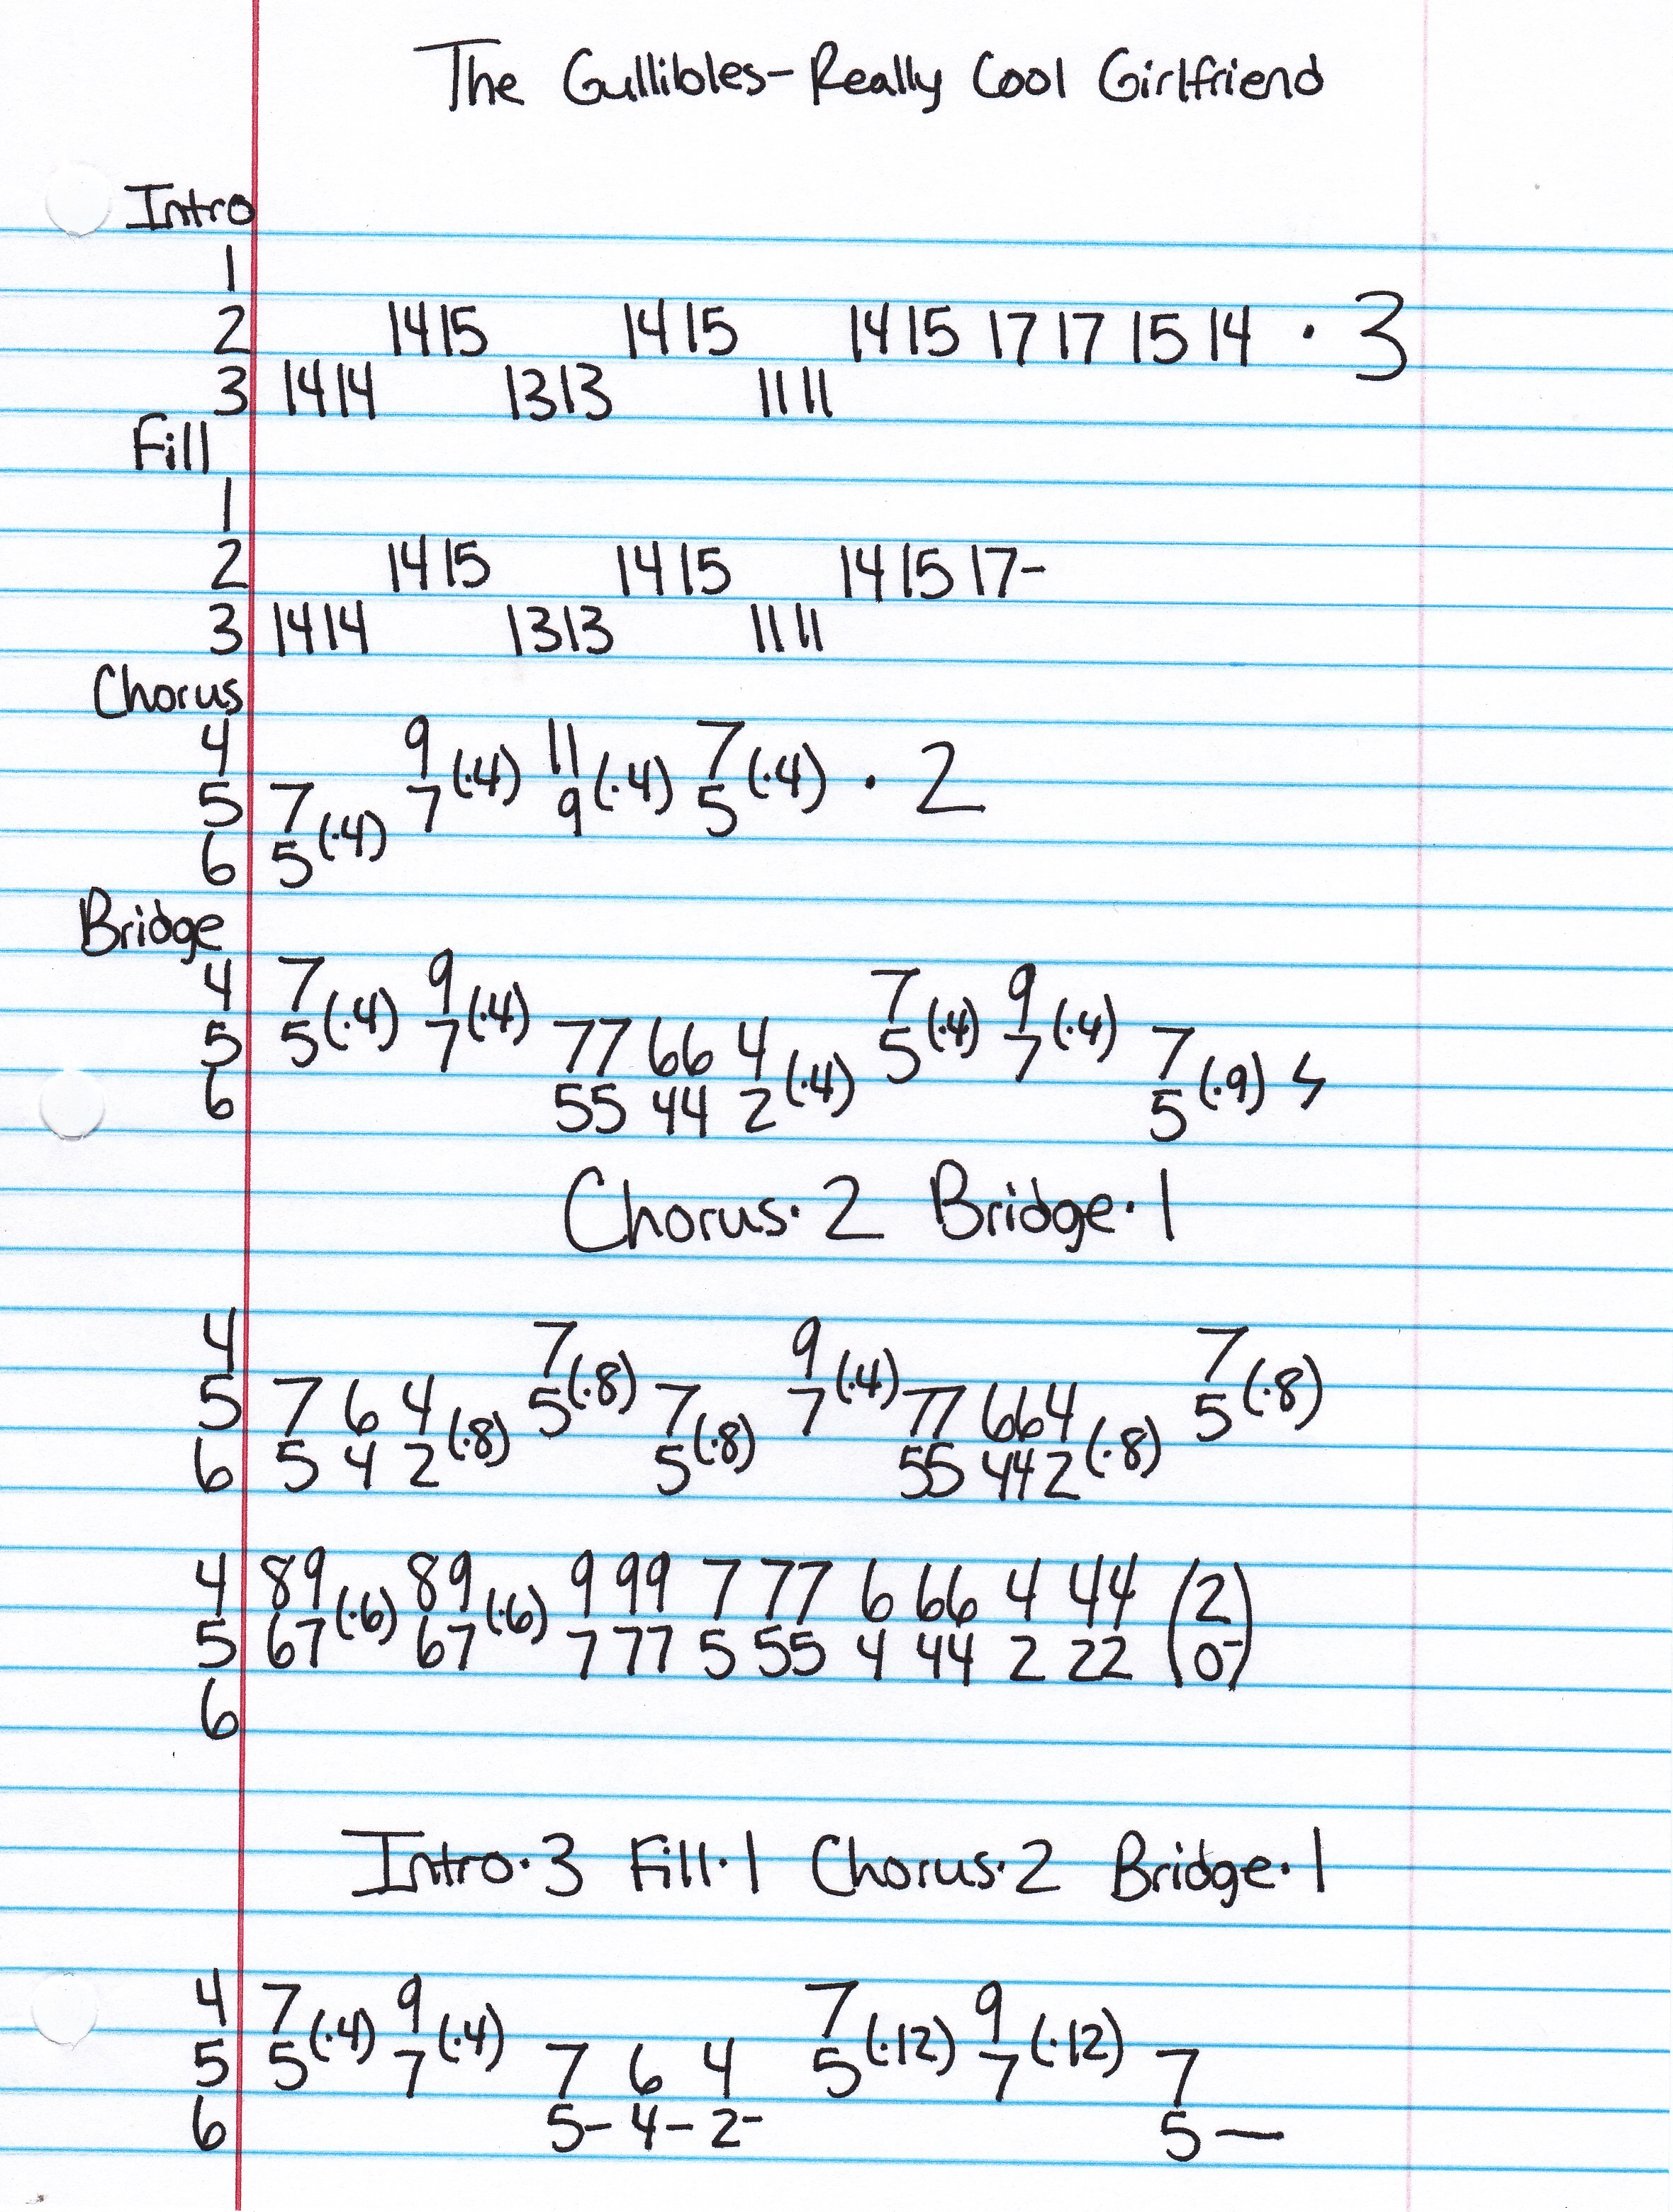 The Gullibles-Really Cool Girlfriend
Intro
1
2 14 15 14 15 14 15 17 17 15 14 · 3
3 14 14 13 13 11 11
Fill
1
2 14 15 14 15 14 15 17-
3 14 14 13 13 11 11
Chorus
4 9 11 7
5 7 7 (·4) 9 (·4) 5 (·4) · 2
6 5 (·4)
Bridge
4 7 9 7 9
5 5 (·4) 7 (·4) 77 66 4 5 (·4) 7 (·4) 7
6 55 44 2 (·4) 5 (·9) ϟ
Chorus·2 Bridge·1
4 7 9 7
5 7 6 4 5 (·8) 7 7 (·4) 77 66 4 5 (·8)
6 5 4 2 (·8) 5 (·8) 55 44 2 (·8)
4 89 89 9 99 7 77 6 66 4 44 (2
5 67 (·6) 67 (·6) 7 77 5 55 4 44 2 22 0-)
6
Intro·3 Fill·1 Chorus·2 Bridge·1
4 7 9 7 9
5 5 (·4) 7 (·4) 7 6 4 5 (·12) 7 (·12) 7
6 5- 4- 2- 5-